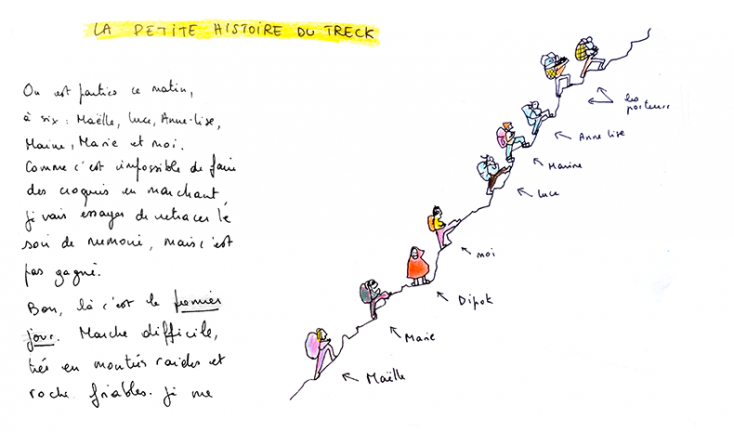 LA PETITE HISTOIRE DU TRECK
On est parties ce matin,
à six : Maëlle, Luce, Anne-lise,
Marine, Marie et moi.
Comme c'est impossible de faire
des croquis en marchant,
je vais essayer de retracer le
soir de memoire, mais c'est
pas gagné.
Bon, là c'est le premier
jour. Marche difficile,
très en montées raides et
roche friables. Je me
les porteurs
Anne lise
Marine
Luce
moi
Dipok
Marie
Maëlle